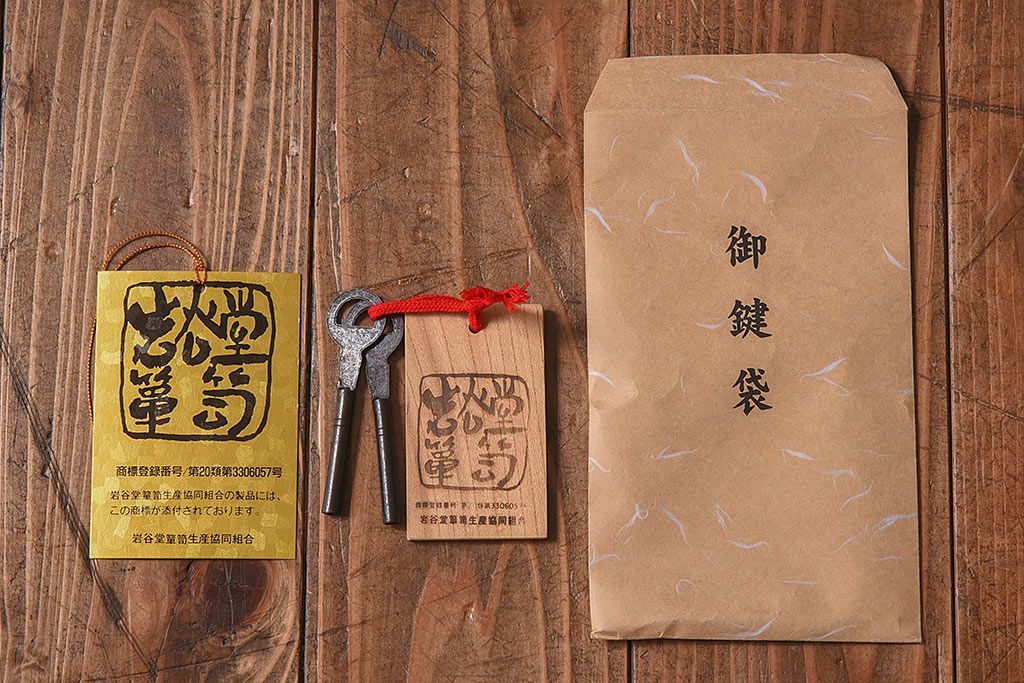 岩谷堂
簞笥
商標登録番号/第20類第3306057号
岩谷堂簞笥生産協同組合の製品には、
この商標が添付されております。
岩谷堂簞笥生産協同組合
岩谷堂
簞笥
岩谷堂簞笥生産協同組合
御鍵袋